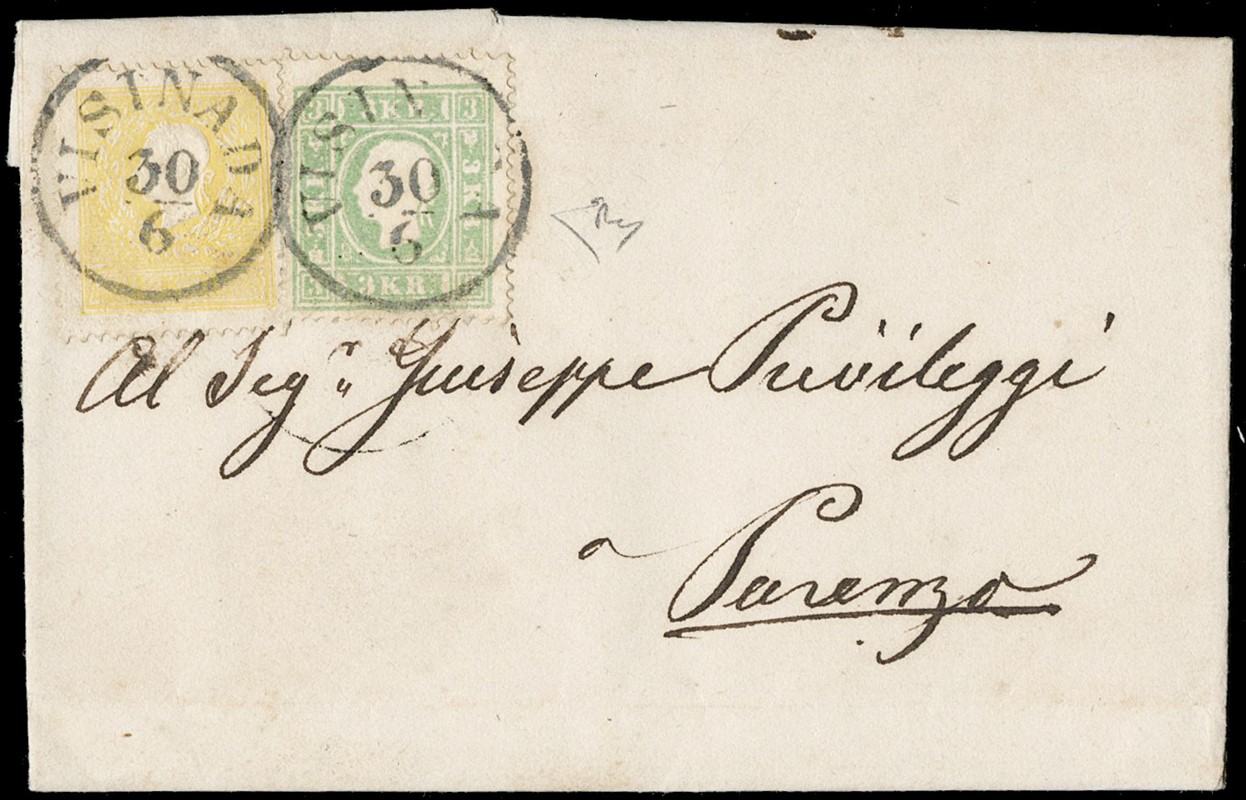 VISINADA
30
6
VISIN
30
6
3 3 KR 3
3 KR
3 KR
Al Seg.r Giuseppe Privileggi
a Parenzo